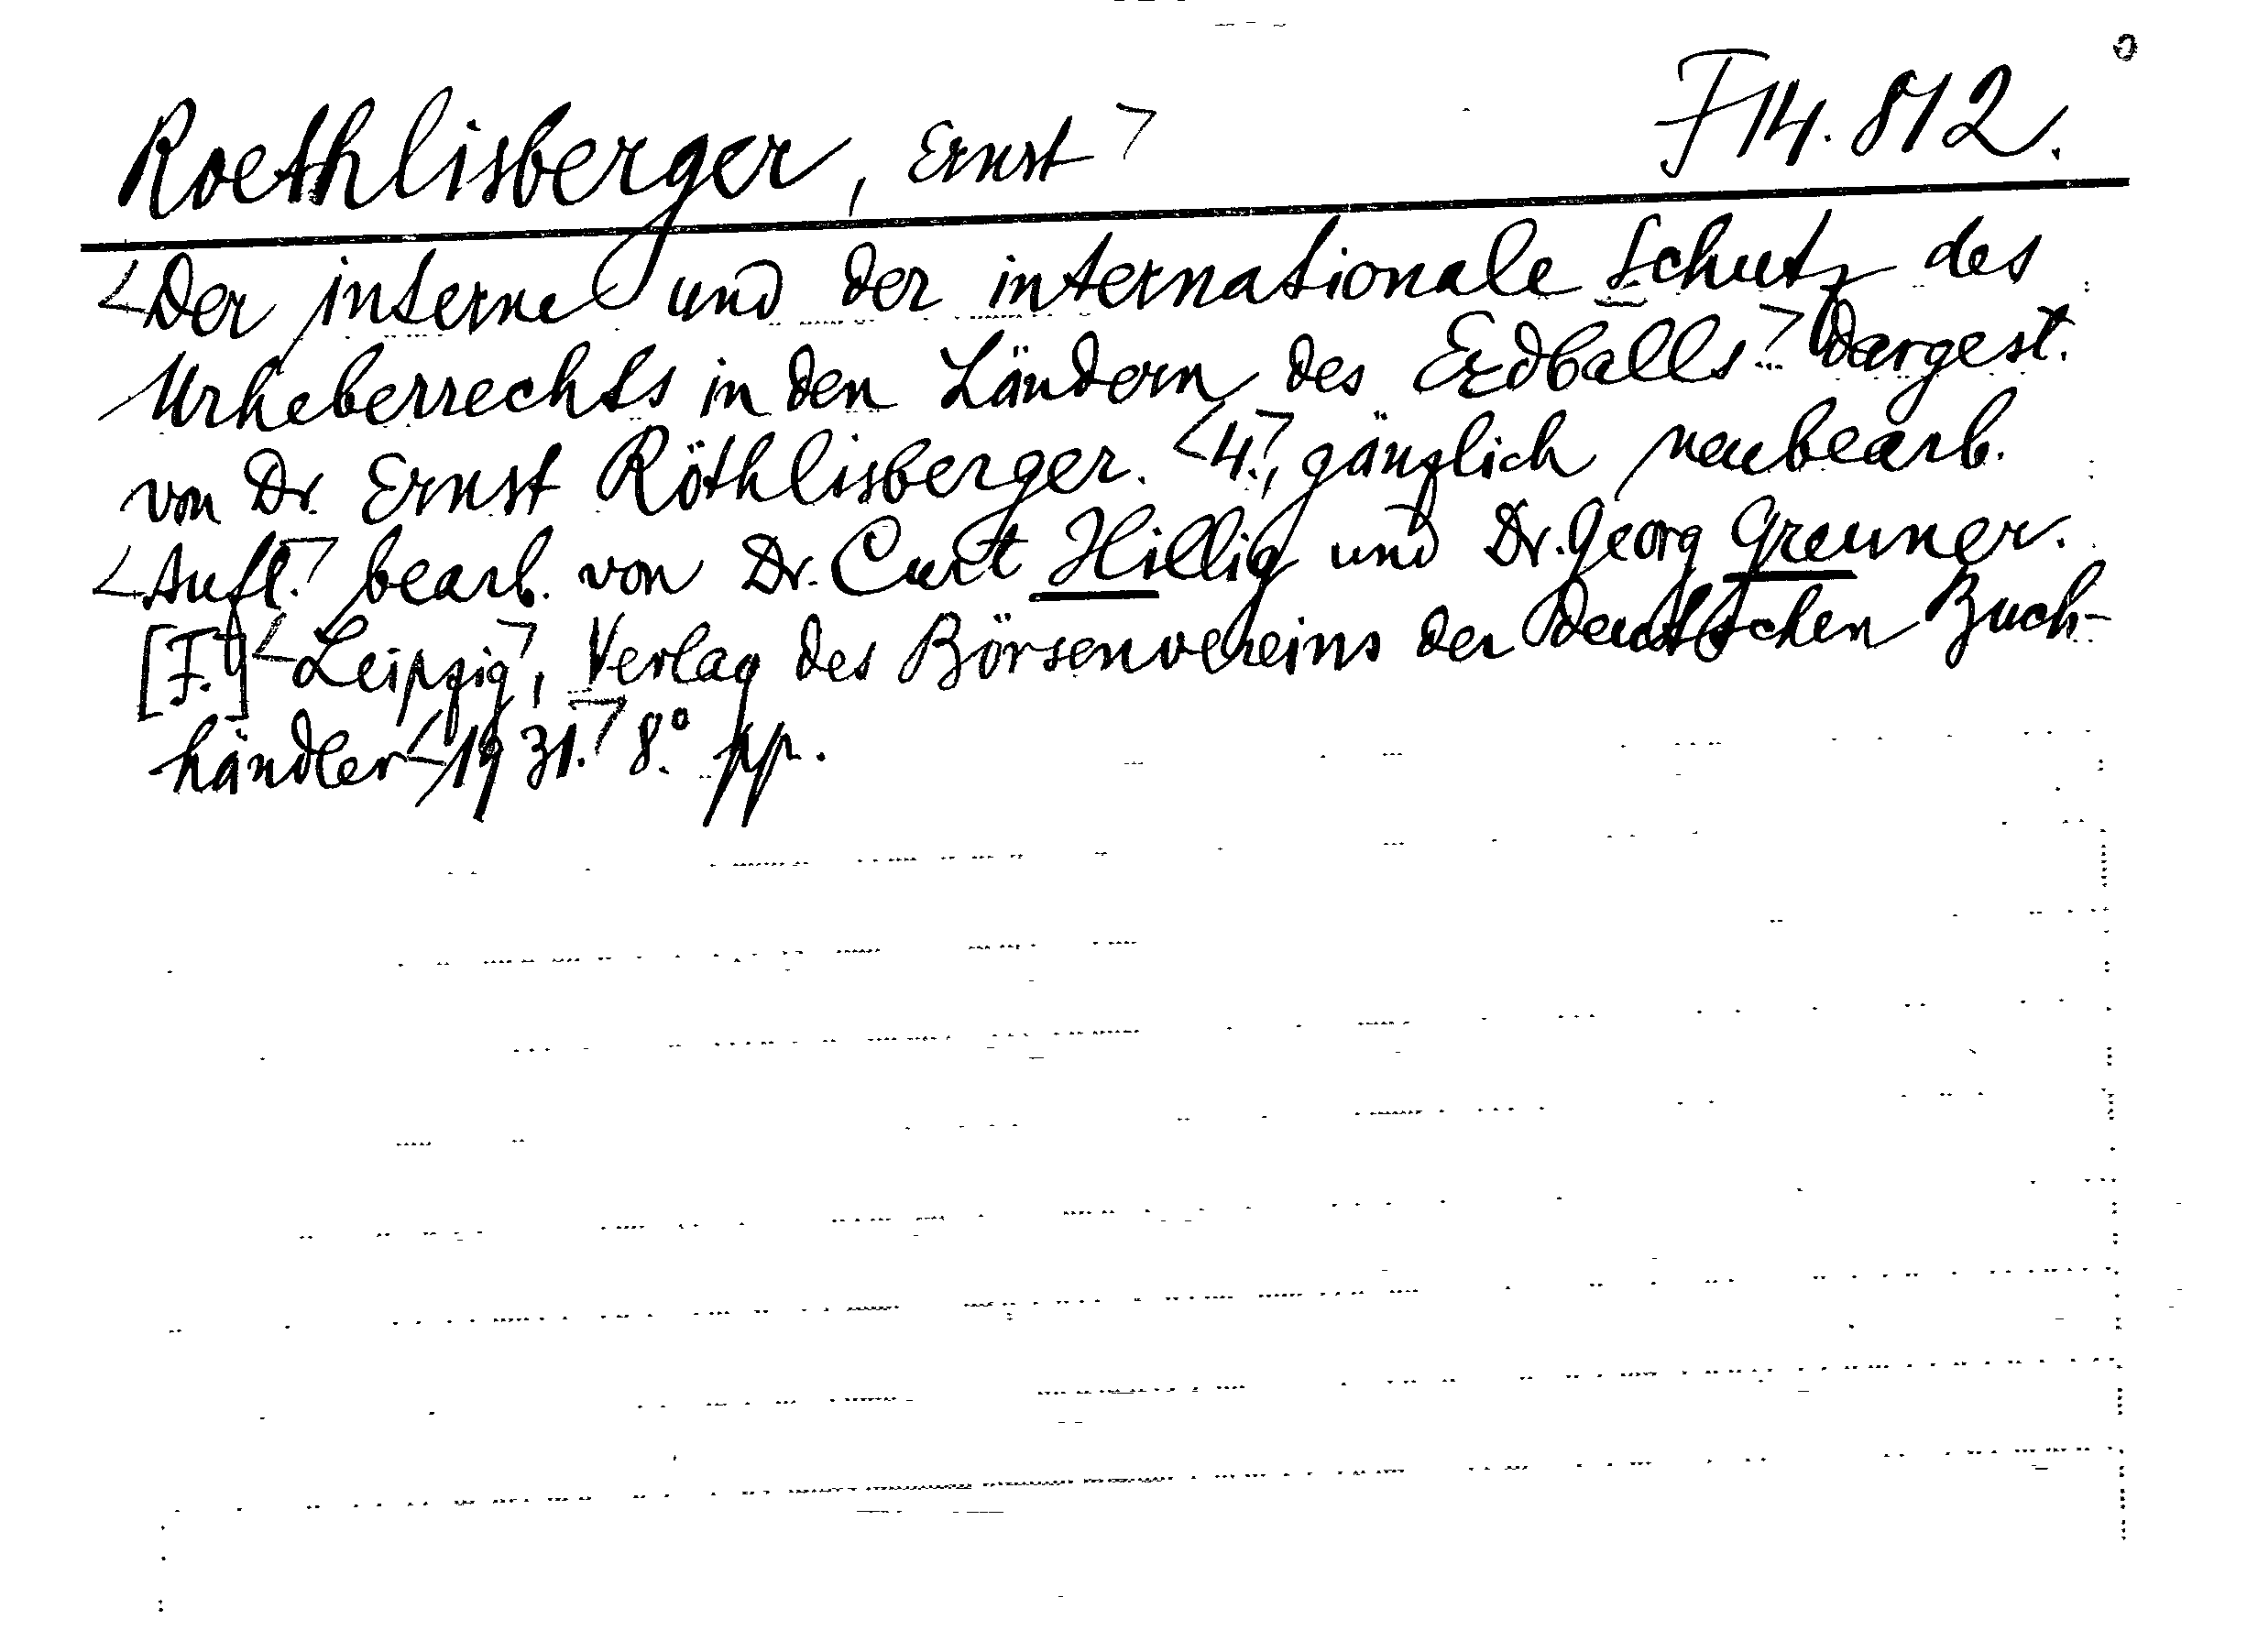 Roethlisberger, Ernst F 14.812.
Der interne und der internationale Schutz des
Urheberrechts in den Ländern des Erdballs. Dargest.
von Dr. Ernst Röthlisberger. 4., gänzlich neubearb.
Aufl. bearb. von Dr. Curt Hillig und Dr. Georg Greuner.
[F.] Leipzig, Verlag des Börsenvereins der Deutschen Buch-
händler 1931. 8.° pp.